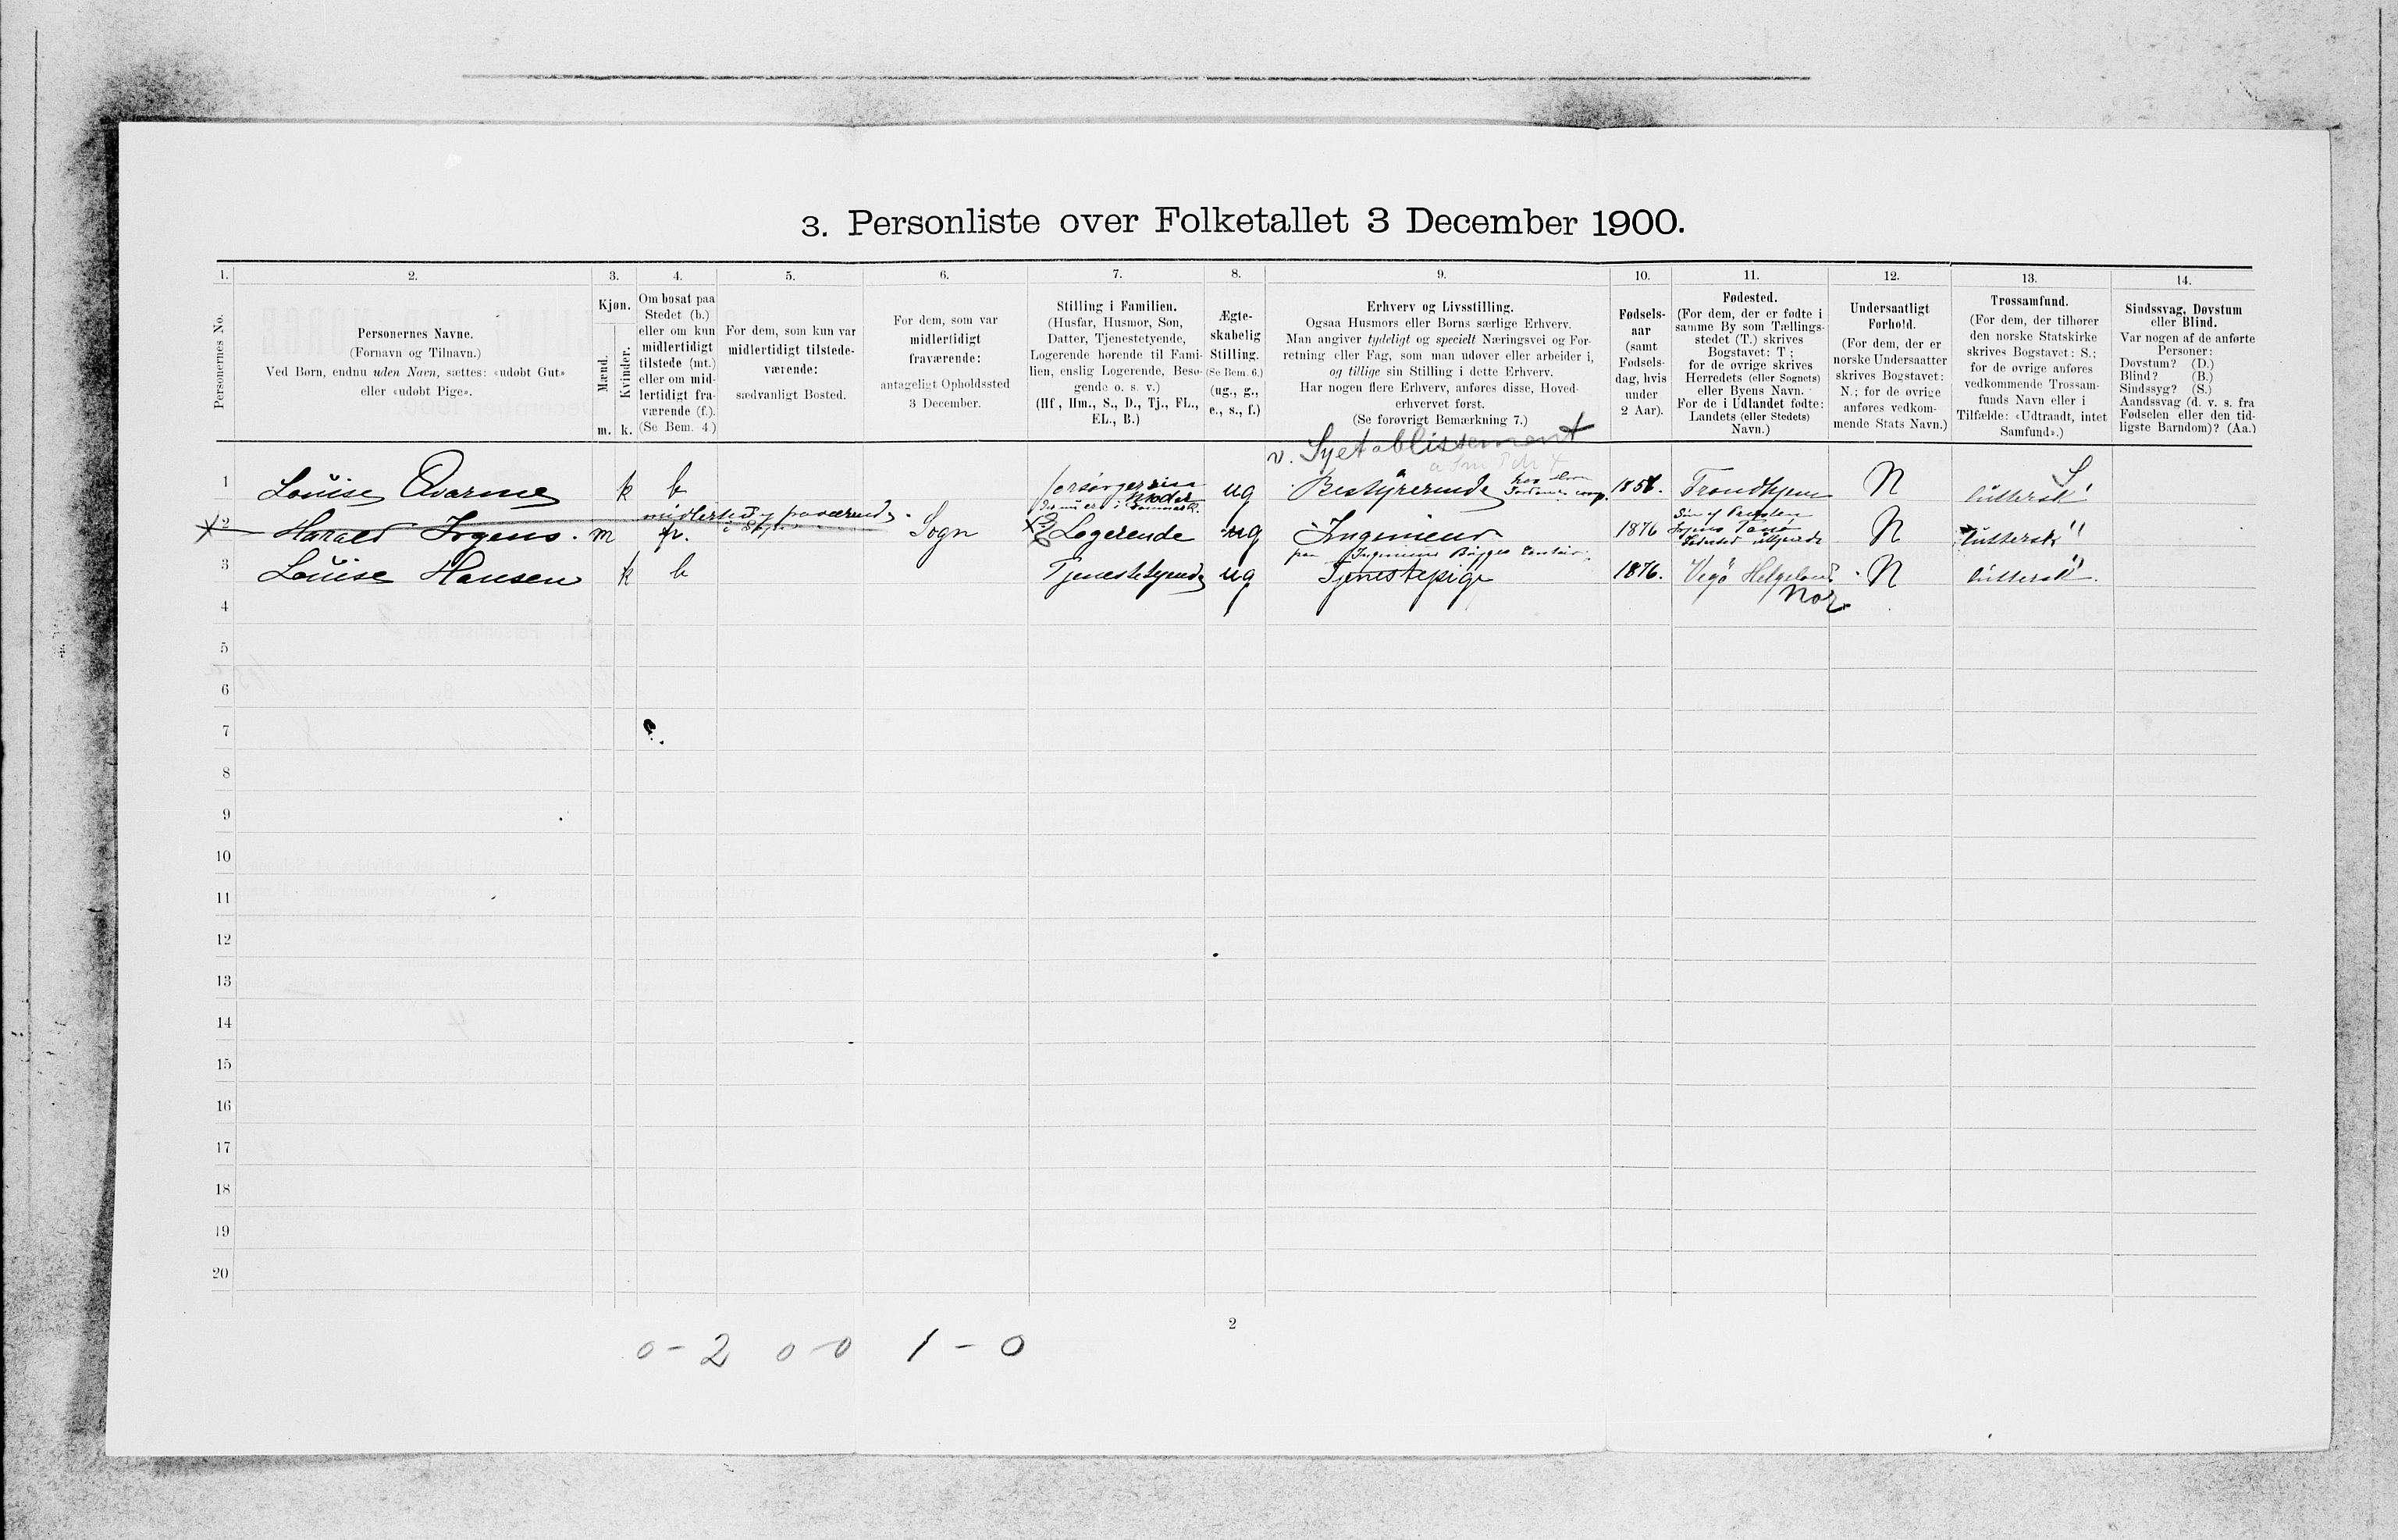 3. Personliste over Folketallet 3 December 1900.
1. 2. 3. 4. 5. 6. 7. 8. 9. 10. 11. 12. 13. 14.
Personernes No.
Personernes Navne.
(Fornavn og Tilnavn.)
Ved Børn, endnu uden Navn, sættes: «udøbt Gut»
eller «udøbt Pige».
Kjøn.
Mænd.
Kvinder.
m. k.
Om bosat paa
Stedet (b.)
eller om kun
midlertidigt
tilstede (mt.)
eller om mid-
lertidigt fra-
værende (f.).
(Se Bem. 4)
For dem, som kun var
midlertidigt tilstede-
værende:
sædvanligt Bosted.
For dem, som var
midlertidigt
fraværende:
antageligt Opholdssted
3 December.
Stilling i Familien.
(Husfar, Husmor, Søn,
Datter, Tjenestetyende,
Logerende hørende til Fami-
lien, enslig Logerende, Besø-
gende o. s. v.)
(Hf, Hm., S., D., Tj., FL.,
EL., B.)
Ægte-
skabelig
Stilling.
(Se Bem. 6.)
(ug., g.,
e., s., f.)
Erhverv og Livsstilling.
Ogsaa Husmors eller Børns særlige Erhverv.
Man angiver tydeligt og specielt Næringsvei og For-
retning eller Fag, som man udøver eller arbeider i,
og tillige sin Stilling i dette Erhverv.
Har nogen flere Erhverv, anføres disse, Hoved-
erhvervet først.
(Se forøvrigt Bemærkning 7.)
Fødsels-
aar
(samt
Fødsels-
dag, hvis
under
2 Aar).
Fødested.
(For dem, der er fødte i
samme By som Tællings-
stedet (T.) skrives
Bogstavet: T;
for de øvrige skrives
Herredets (eller Sognets)
eller Byens Navn.
For de i Udlandet fødte:
Landets (eller Stedets)
Navn.)
Undersaatligt
Forhold.
(For dem, der er
norske Undersaatter
skrives Bogstavet:
N.; for de øvrige
anføres vedkom-
mende Stats Navn.)
Trossamfund.
(For dem, der tilhører
den norske Statskirke
skrives Bogstavet: S.;
for de øvrige anføres
vedkommende Trossam-
funds Navn eller i
Tilfælde: «Udtraadt, intet
Samfund».)
Sindssvag, Døvstum
eller Blind.
Var nogen af de anførte
Personer:
Døvstum? (D.)
Blind? (B.)
Sindssyg? (S.)
Aandssvag (d. v. s. fra
Fødselen eller den tid-
ligste Barndom)? (Aa.)
v. Syetablissement
1 Louise Qvarme k b forsørgerska ug Bestyrerinde 1856. Trondhjem N S
midlertidig fraværende
2 Harald Irgens. m fr. Sogn Logerende ug Ingenieur 1876 N luthersk "
3 Louise Hansen k b Tjenestetyende ug Tjenestepige 1876. Vegø Helgeland N luthersk "
Nor.
4
5
6
7
8
9
10
11
12
13
14
15
16
17
18
19
20
2
0 - 2 0 - 0 1 - 0